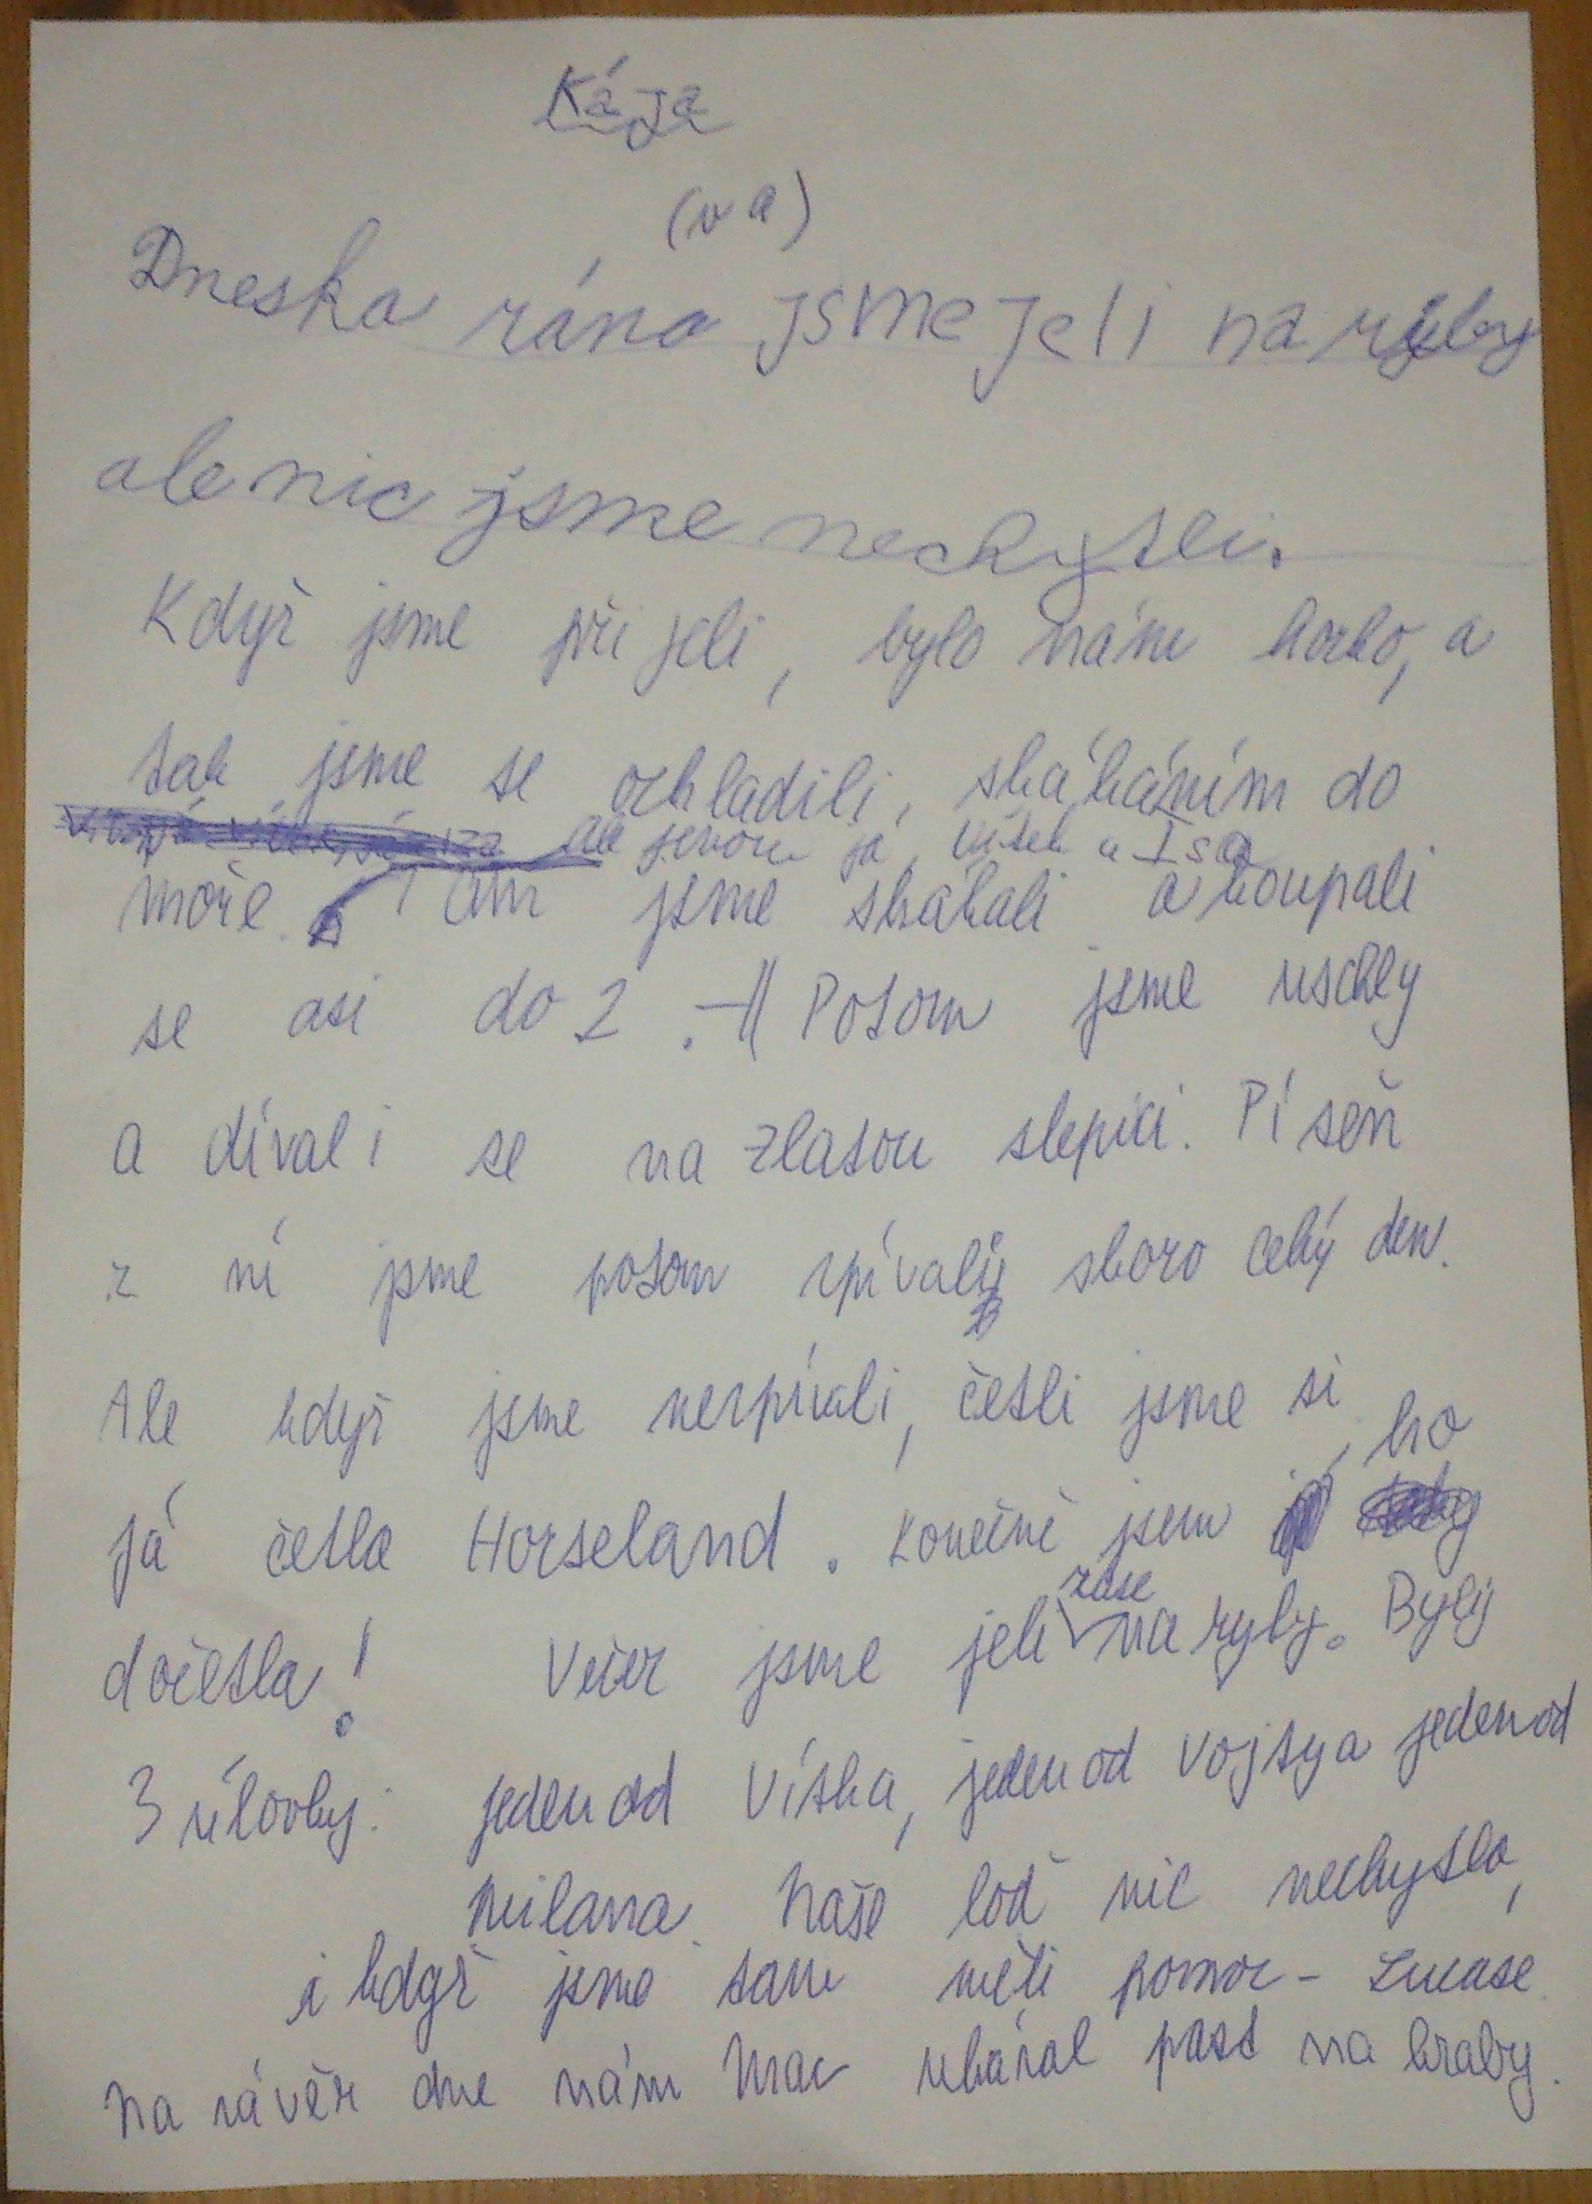 Kája
(va)
Dneska ráno jsme jeli na ryby
ale nic jsme nechytli.
Když jsme přijeli, bylo nám horko, a
tak jsme se ochladili, skákáním do
ale jenom já, Vítek a Isa
moře. Tam jsme skákali a koupali
se asi do 2. Potom jsme uschly
a dívali se na Zlatou slepici. Píseň
z ní jsme potom zpívali skoro celý den.
Ale když jsme nezpívali, četli jsme si,
já četla Horseland. Konečně jsem ho
dočetla! Večer jsme jeli zase na ryby. Byly
3 úlovky: jeden od Vítka, jeden od Vojty a jeden od
Milana. Naše loď nic nechytla,
i když jsme tam měli pomoc - Lucase.
Na závěr dne nám Mac ukázal past na kraby.